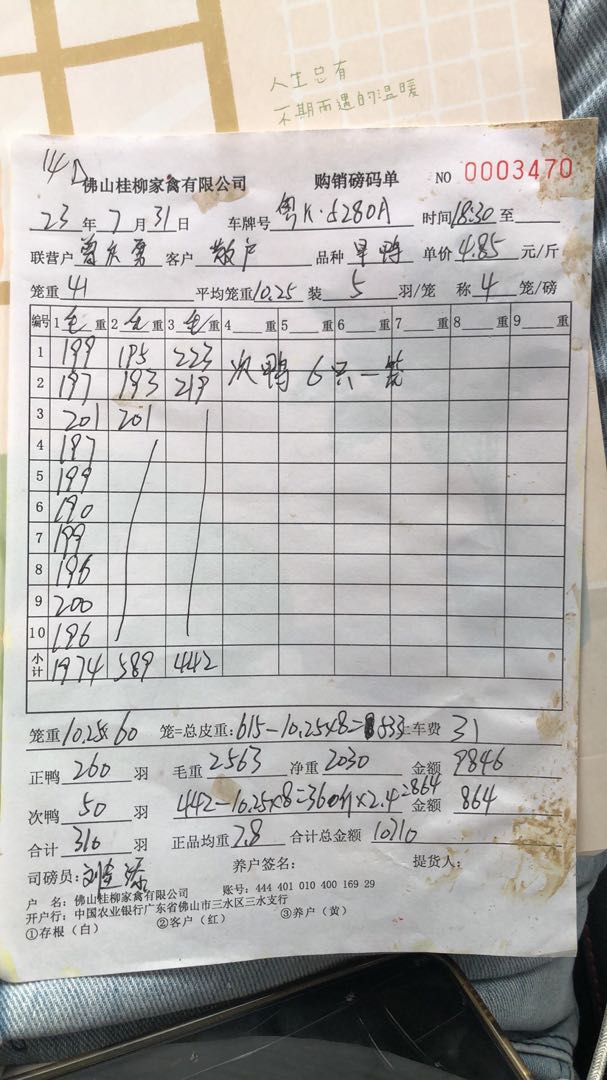 人生总有
不期而遇的温暖
佛山桂柳家禽有限公司 购销磅码单 NO 0003470
23 年 7 月 31 日 车牌号 粤K·5280A 时间 18:30 至
联营户 客户 散户 品种 旱鸭 单价 4.85 元/斤
笼重 41 平均笼重 10.25 装 5 羽/笼 称 4 笼/磅
编号 1 毛 重 2 毛 重 3 毛 重 4 重 5 重 6 重 7 重 8 重 9 重
1 199 195 223 次鸭 6只一笼
2 197 193 219
3 201 201
4 197
5 199
6 190
7 199
8 196
9 200
10 196
小计 1974 589 442
笼重 10.25×60 笼=总皮重: 615-10.25×8=533 上车费 31
正鸭 260 羽 毛重 2563 净重 2030 金额 9846
次鸭 50 羽 442-10.25×8=360斤×2.4=864 金额 864
合计 310 羽 正品均重 7.8 合计总金额 10710
养户签名: 提货人:
司磅员:
户 名: 佛山桂柳家禽有限公司 账号: 444 401 010 400 169 29
开户行: 中国农业银行广东省佛山市三水区三水支行
①存根(白) ②客户(红) ③养户(黄)